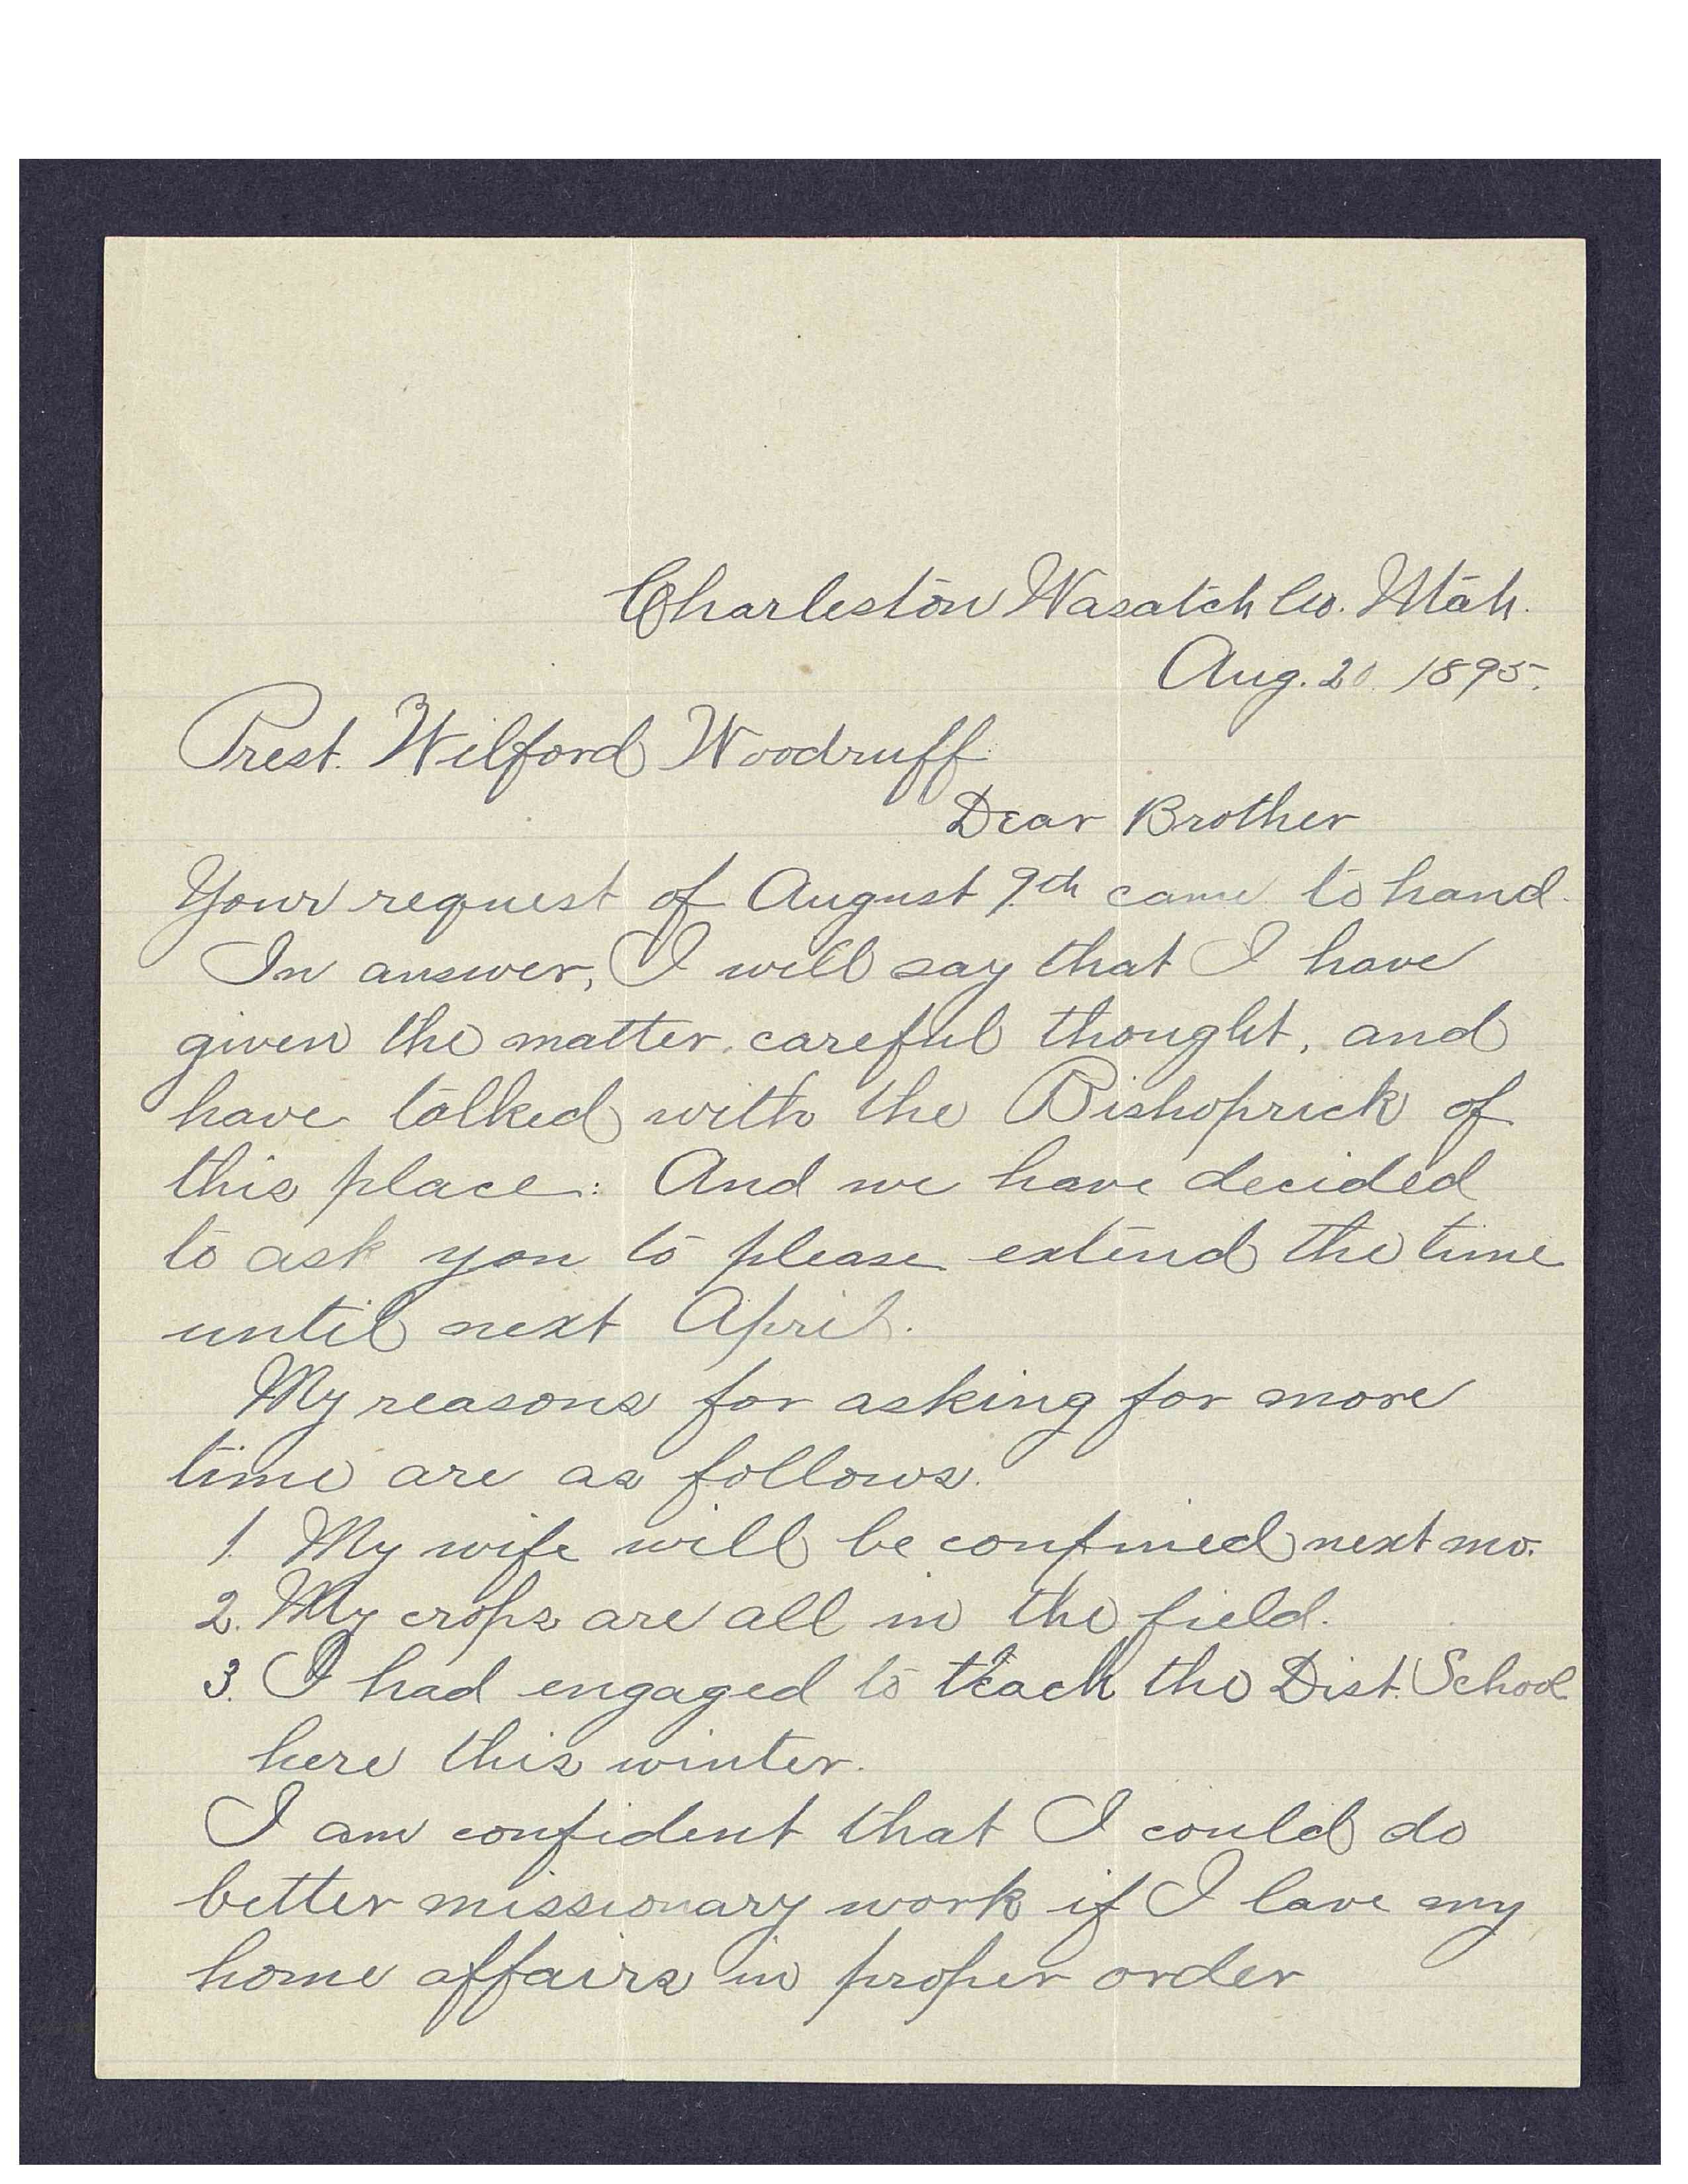 Charleston Wasatch Co. Utah.
Aug. 20. 1895.
Prest. Wilford Woodruff
Dear Brother
Your request of August 9th came to hand.
In answer, I will say that I have
given the matter careful thought, and
have talked with the Bishoprick of
this place: And we have decided
to ask you to please extend the time
until next April.
My reasons for asking for more
time are as follows.
1. My wife will be confined next mo.
2. My crops are all in the field.
3. I had engaged to teach the Dist. School
here this winter.
I am confident that I could do
better missionary work if I lave my
home affairs in proper order